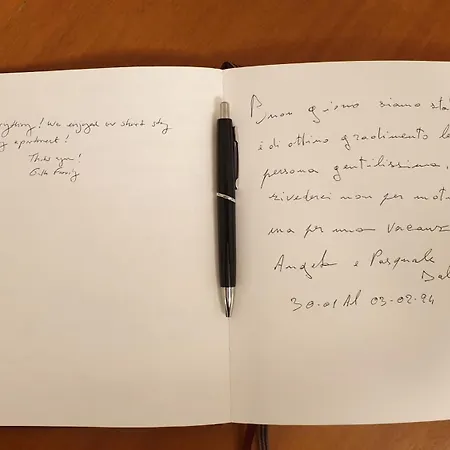 rything! We enjoyed our short stay
y apartment!
Thank you!
Family
Buon giorno siamo sta
è di ottimo gradimento le
persona gentilissima.
rivederci non per motu
ma per una vacanz
Angela e Pasquale
Dal
30-01 Al 03-02-24